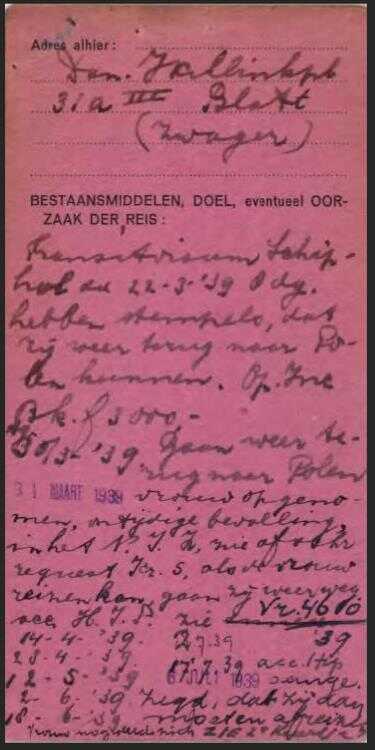 Adres alhier:
Dan. Willinkpl
31a III Blatt
(Zwager)
BESTAANSMIDDELEN, DOEL, eventueel OOR-
ZAAK DER REIS:
Transitvisum Schip-
hol dd 22-3-'39 8 dg.
hebben stempels, dat
zij weer terug naar Po-
len kunnen. Op
Bk. f 3000,-
30/3-'39 Gaan weer te-
rug naar Polen
31 MAART 1939 vrouw opgeno-
men, ontijdige bevalling,
in het N.I.Z, zie afschr
request Kr. 5, als vrouw
reizen kan, gaan zij weer weg
acc. H.I.S. zie Vr. 4610
14-4-'39. 7.39 '39
28-4-'39. 17.7.39 acc. Hp
12-5-'39 6 JULI 1939
2-6-'39 zegd, dat zij dan
18 6-'39 moeten afreizen
vrouw nog